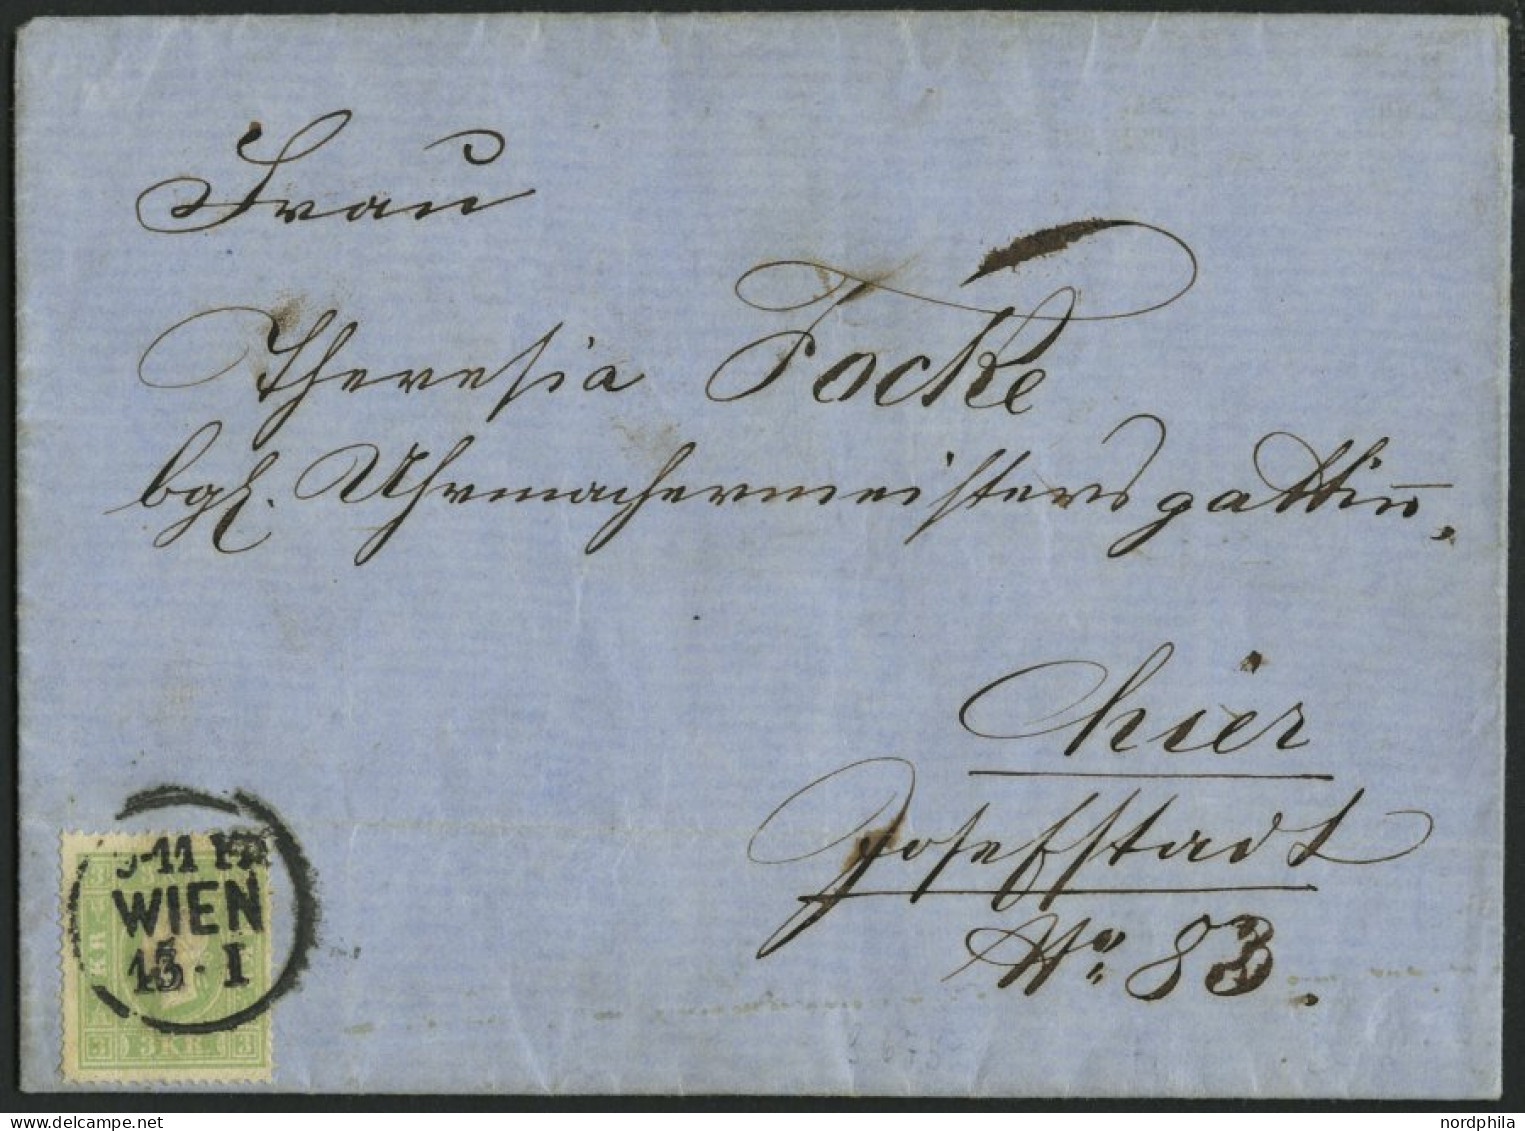 Frau
Theresia Focke
bgl. Uhrmachermeistersgattin,
hier
Josefstadt
No. 83.
WIEN
13. I
3 KR
3
3
nordphila